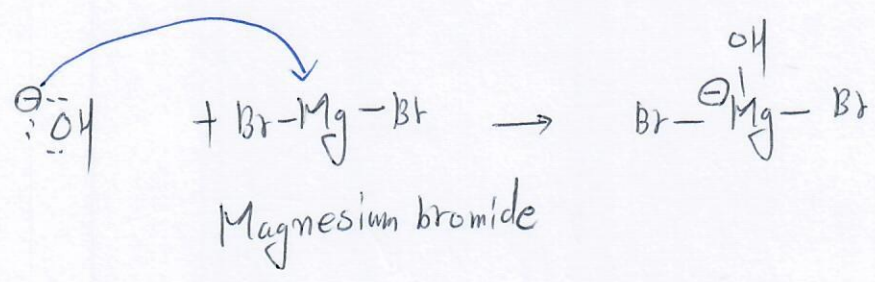 OH
⊖ :ÖH + Br–Mg–Br → Br–⊖Mg–Br
Magnesium bromide